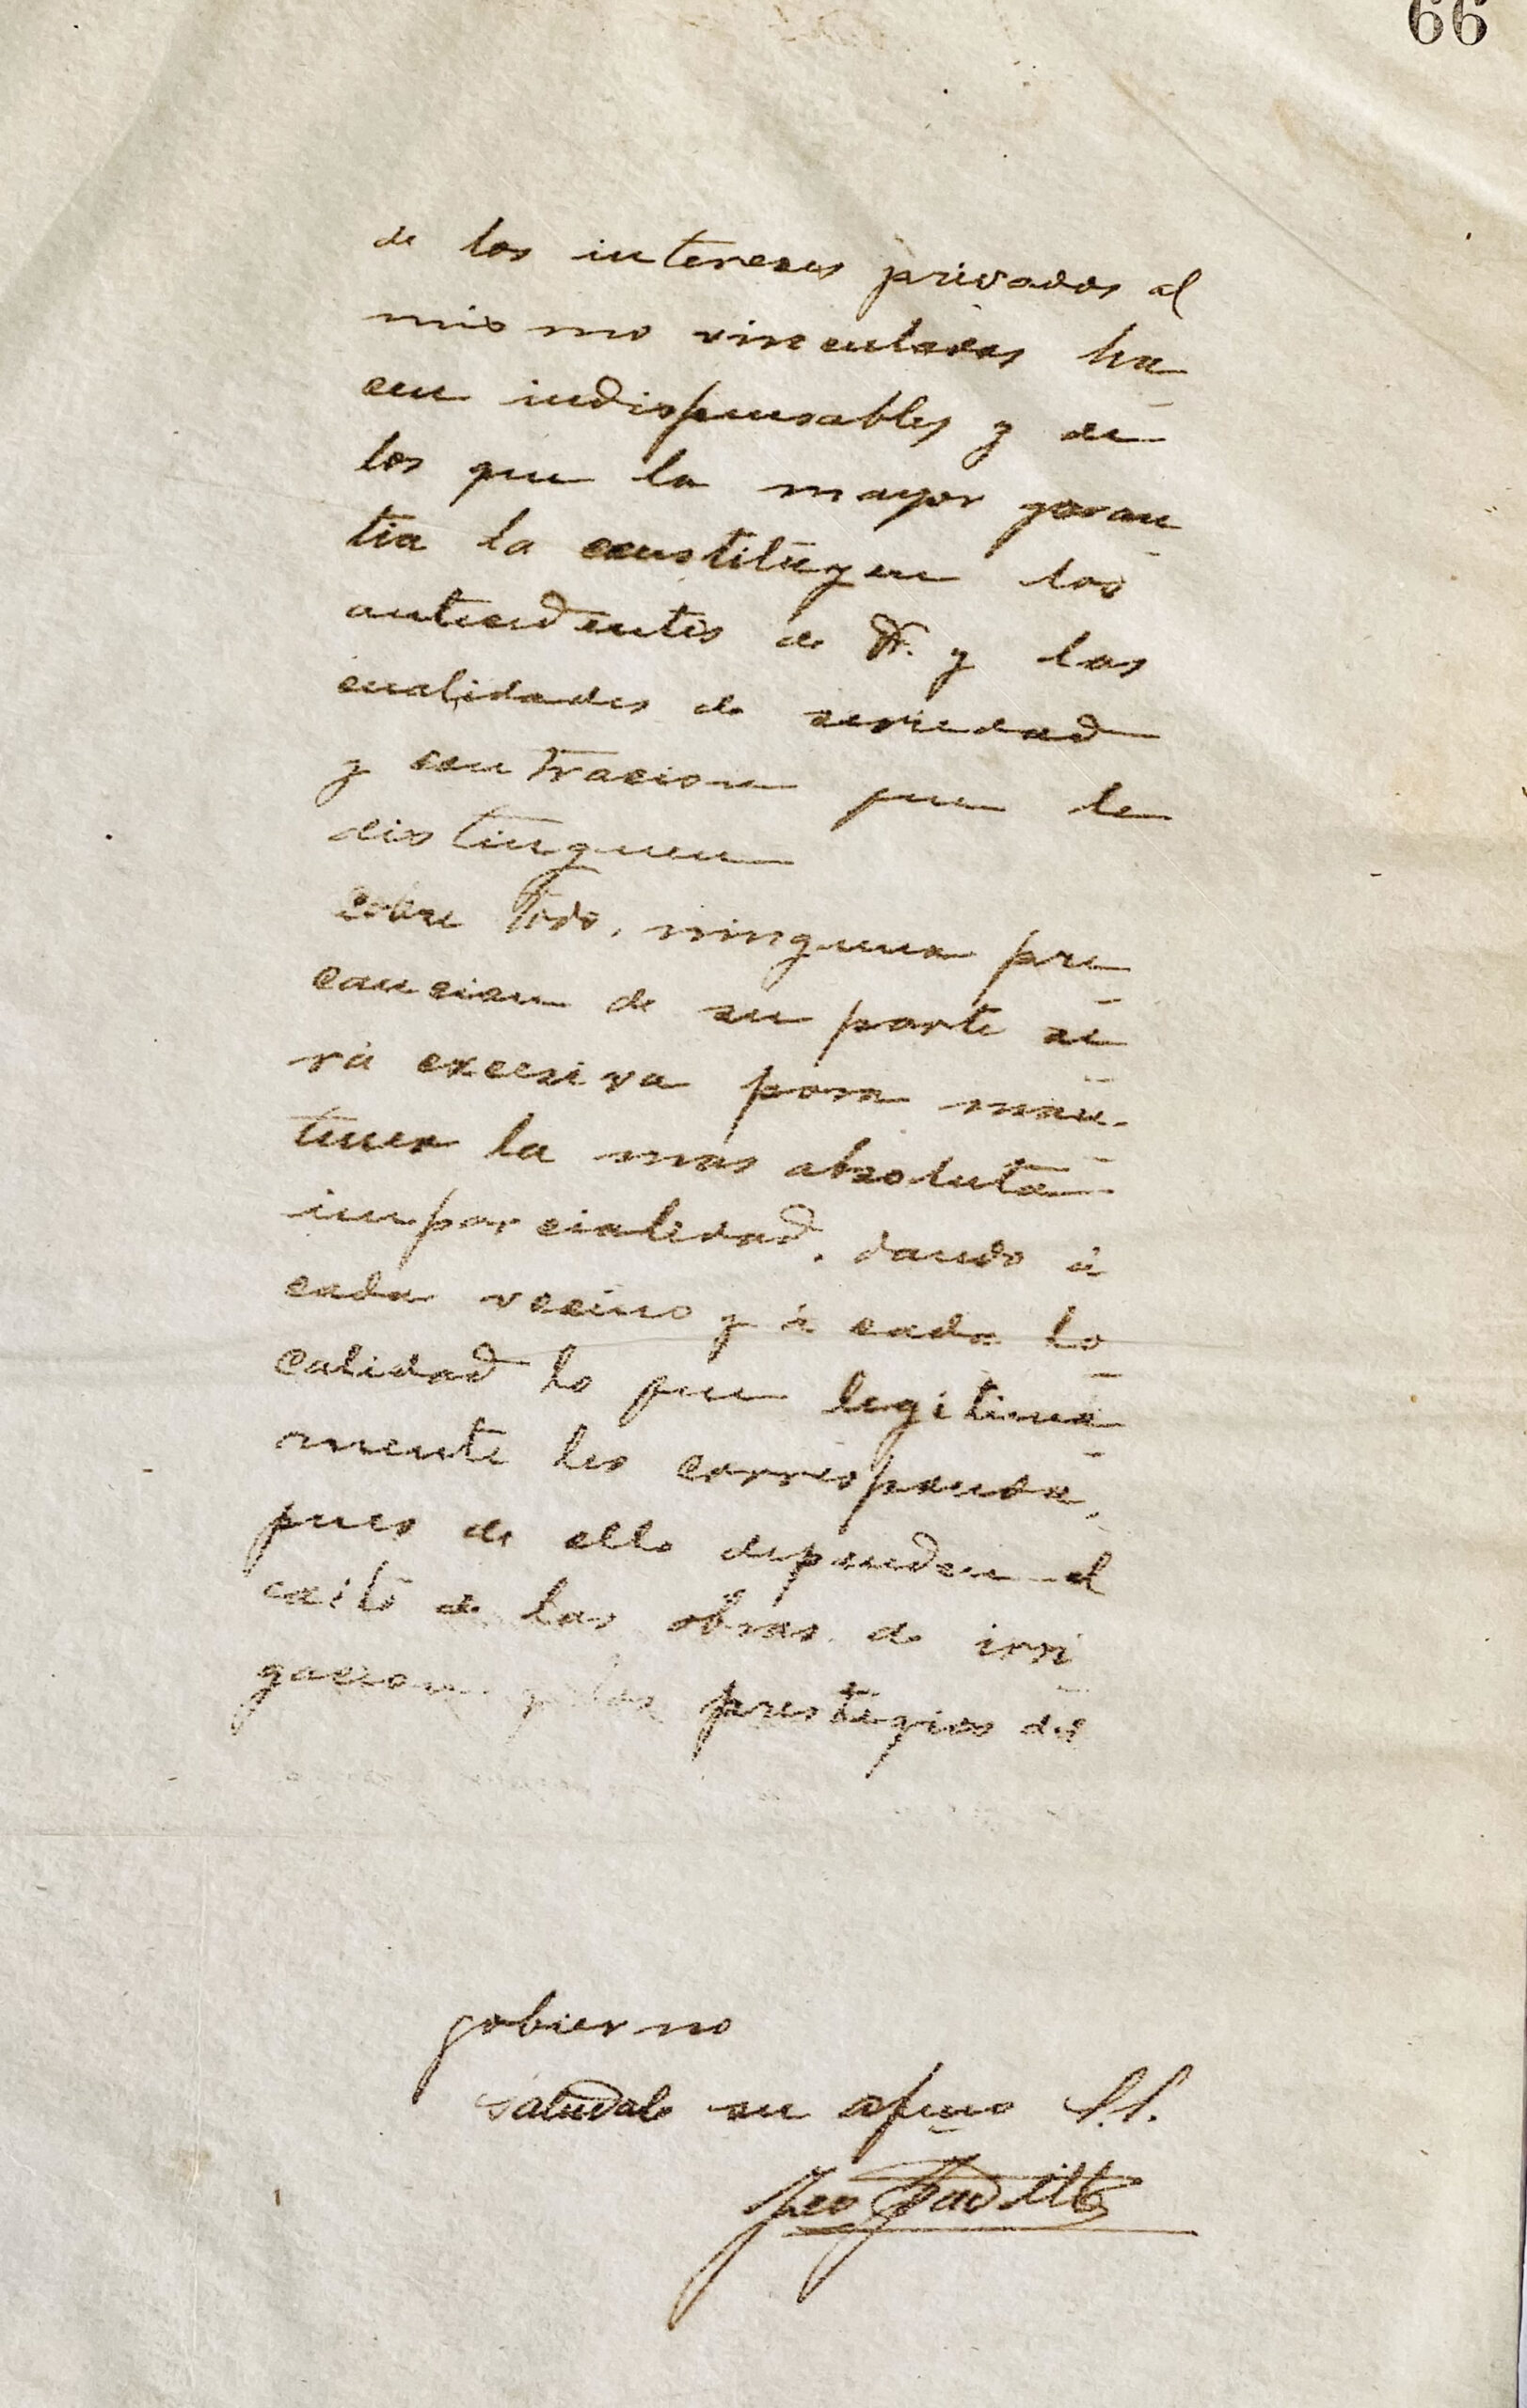 66
de los intereses privados al
mismo vinculados ha
cen indispensables y de
los que la mayor garan
tia la constituyen los
antecedentes de V. y las
cualidades de seriedad
y contracion que le
distinguen
Sobre todo, ninguna pre
caucion de su parte se
rá excesiva para man-
tener la mas absoluta
imparcialidad, dando á
cada vecino y á cada lo
calidad lo que legitima
mente les corresponda,
pues de ello dependen el
exito de las obras de irri
gacion y los prestigios del
gobierno
Saludale su afmo S.S.